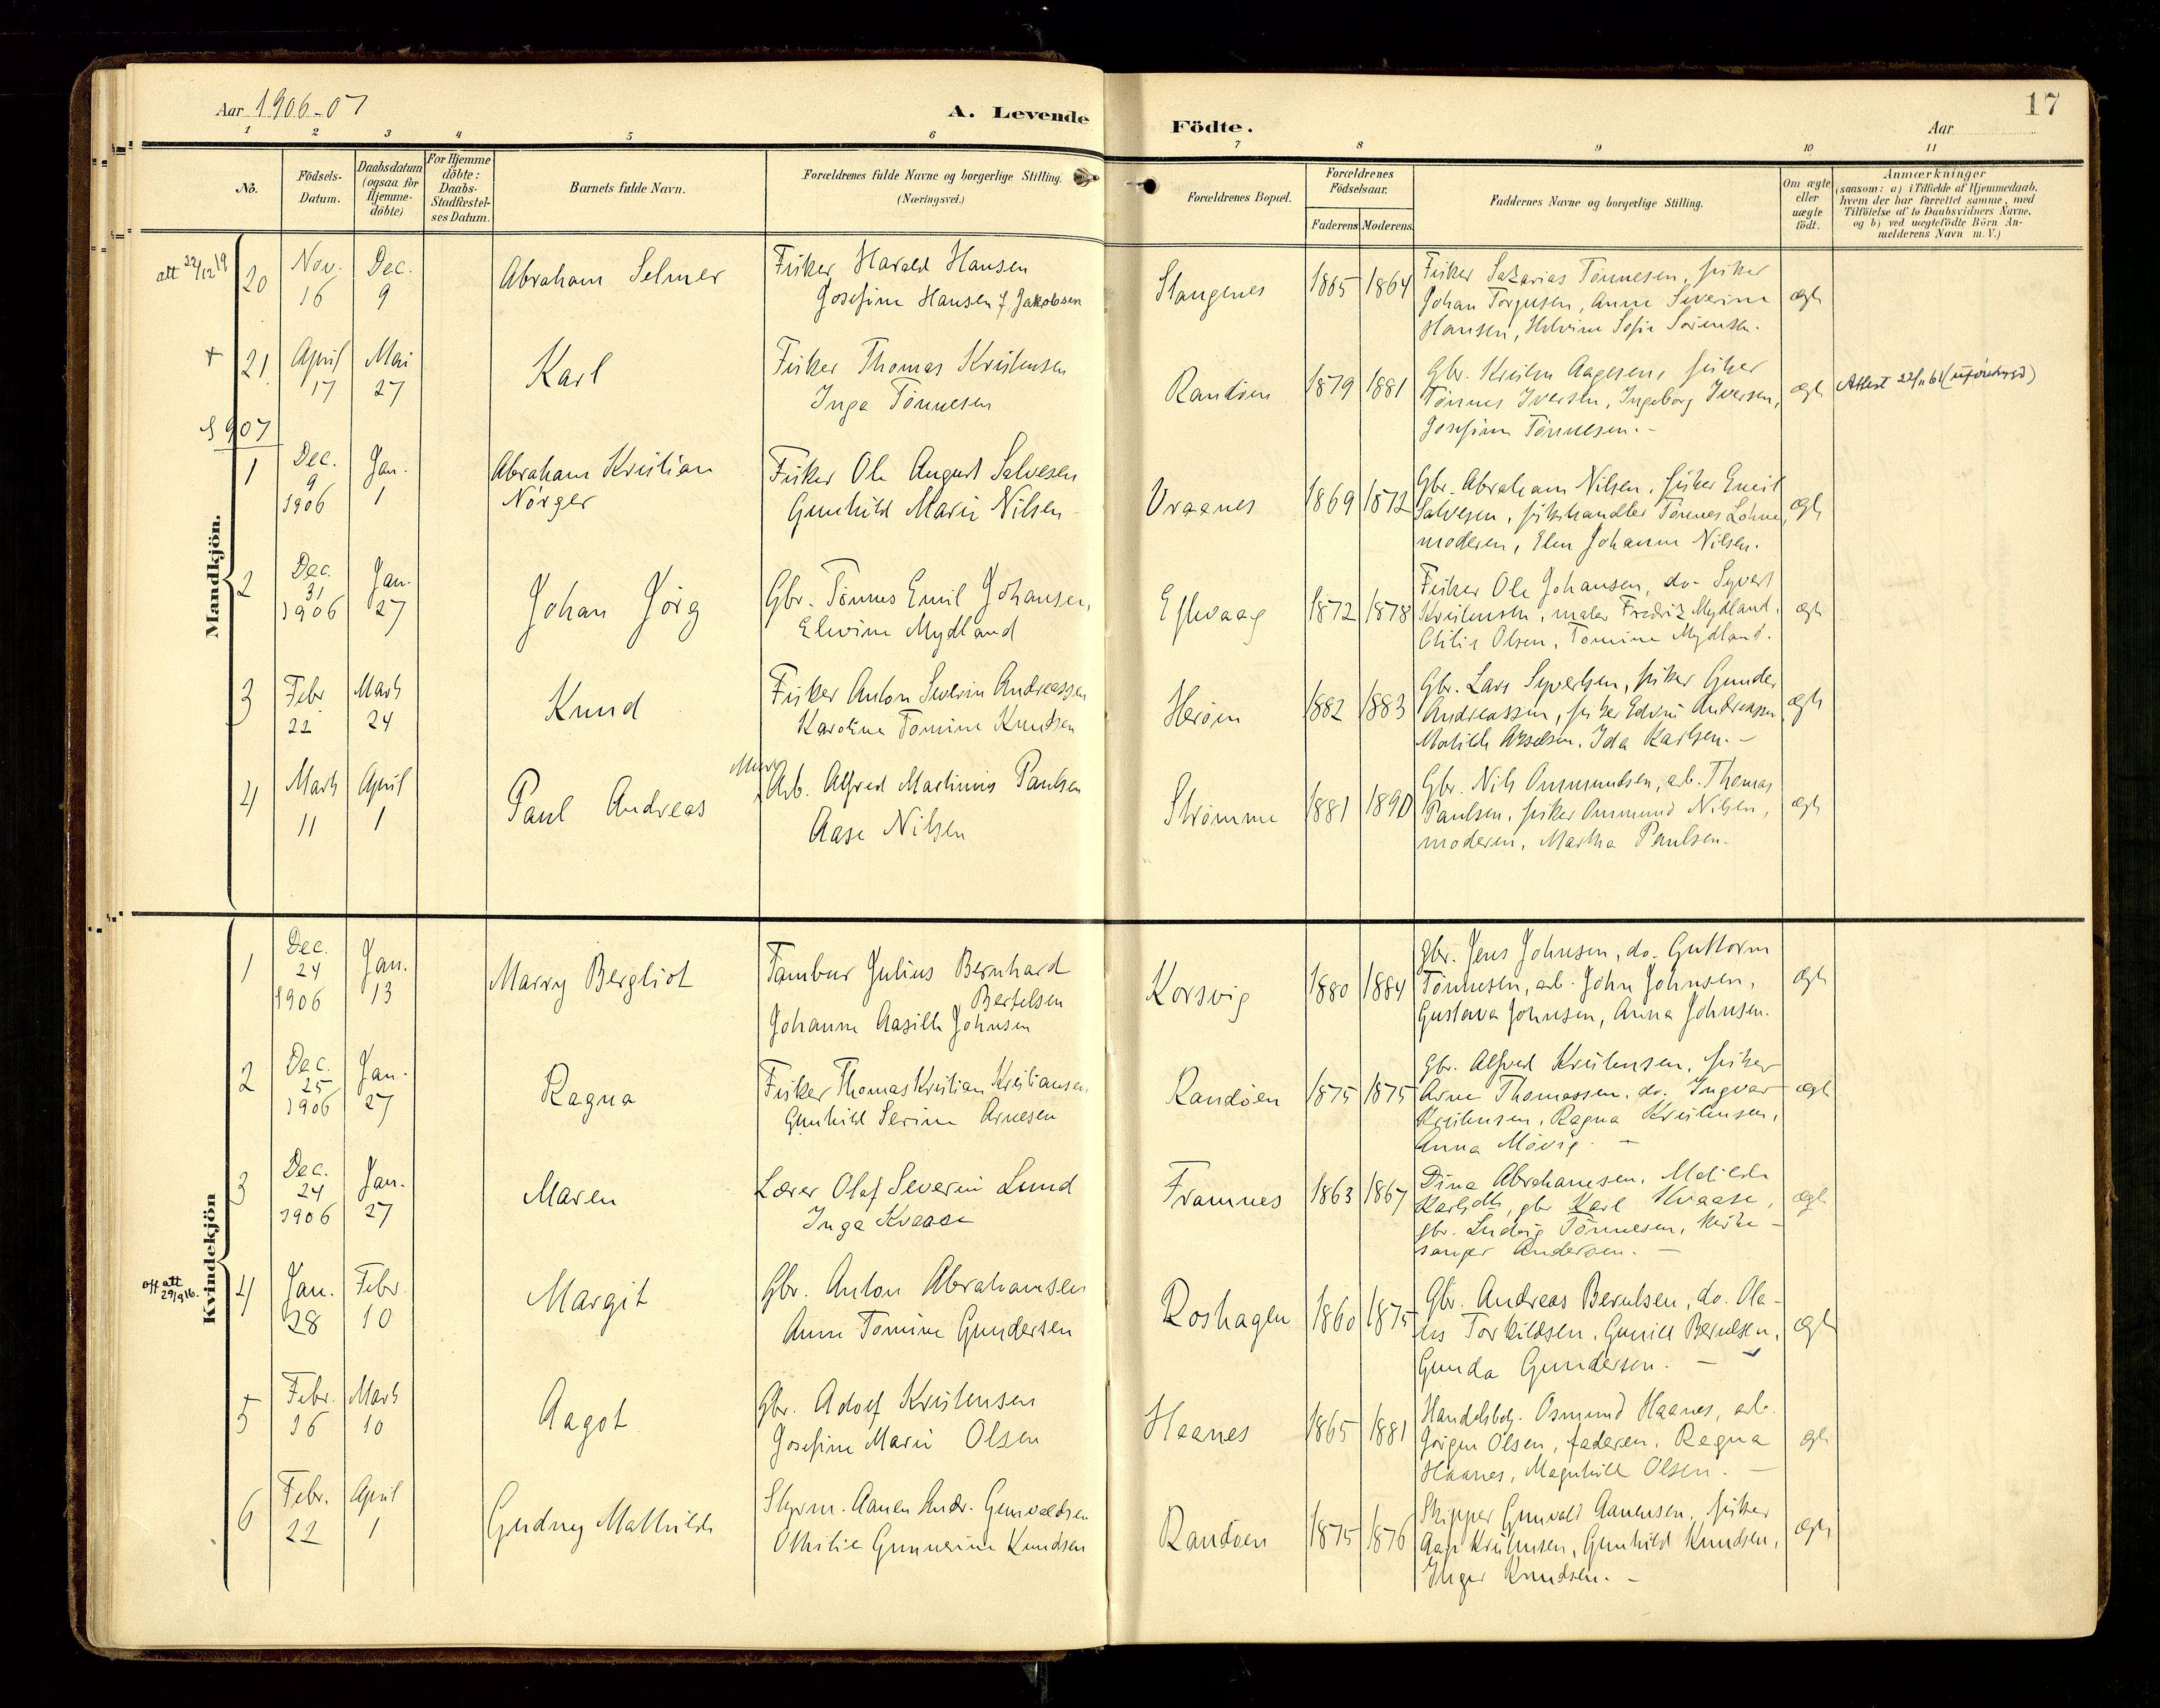 Aar 1906-07
A. Levende
Födte.
Aar
17
1 2 3 4 5 6 7 8 9 10 11
No.
Födsels-
Datum.
Daabsdatum
(ogsaa for
Hjemme-
döbte)
For Hjemme
döbte:
Daabs-
Stadfæstel-
ses Datum.
Barnets fulde Navn.
Forældrenes fulde Navne og borgerlige Stilling.
(Næringsvei.)
Forældrenes Bopæl.
Forældrenes
Födselsaar.
Faderens Moderens
Faddernes Navne og borgerlige Stilling.
Om ægte
eller
uægte
födt.
Anmærkninger
(saasom: a) i Tilfælde af Hjemmedaab,
hvem der har forrettet samme, med
Tilföielse af to Daabsvidners Navne,
og b) ved uægtefödte Börn An-
melderens Navn m. V.)
Mandkjön.
att 22/12 19
20
Nov.
16
Dec.
9
Abraham Selmer
Fisker Harald Hansen
Josefine Hansen f. Jakobsen
Slangenes
1865 1864
Fisker Sakarias Tönnesen, fisker
Johan Torgusen, Anne Severine
Hansen, Helvine Sofie Sörensen.
ægte
+ 21
April
17
Mai
27
Karl
Fisker Thomas Kristensen
Inga Tönnesen
Randöen
1879 1881
Gbr. Kristen Aagesen, fisker
Tönnes Iversen, Ingeborg Iversen,
Josefine Tönnesen. -
ægte
Attest 22/11 61 (uföretrygd)
1907
1
Dec.
9
1906
Jan.
1
Abraham Kristian
Nörger
Fisker Ole August Salvesen
Gunhild Marie Nilsen
Vraanes
1869 1872
Gbr. Abraham Nilsen, fisker Emil
Salvesen, fiskehandler Tönnes Lohne,
moderen, Elen Johanne Nilsen.
ægte
2
Dec.
31
1906
Jan.
27
Johan Jörg
Gbr. Tönnes Emil Johansen,
Elevine Mydland
Eftevaag
1872 1878
Fisker Ole Johansen, do. Syvert
Kristensen, maler Fredrik Mydland,
Otilie Olsen, Tomine Mydland.
ægte
3
Febr
22
Marts
24
Knud
Fisker Anton Severin Andreassen
Karoline Tomine Knudsen
Heröen
1882 1883
Gbr. Lars Syvertsen, fisker Gunder
Andreassen, fisker Edvin Andreassen
Matilde Akselsen, Ida Karlsen. -
ægte
4
Marts
11
April
1
Paul Andreas
Arb. Alfred Martinius Paulsen
Aase Nilsen
Strömme
1881 1890
Gbr. Nils Ommundsen, arb. Thomas
Paulsen, fisker Ommund Nilsen,
moderen, Martha Paulsen.
ægte
Kvindekjön
1
Dec.
24
1906
Jan.
13
Marry Bergliot
Tambur Julius Bernhard
Bertelsen
Johanne Aasille Johnsen
Korsvig
1880 1884
Gbr. Jens Johnsen, do. Guttorm
Tönnesen, arb. John Johnsen,
Gustava Johnsen, Anna Johnsen.
ægte
2
Dec.
25
1906
Jan.
27
Ragna
Fisker Thomas Kristian Kristiansen,
Gunhild Serine Arnesen
Randöen
1875 1875
Gbr. Alfred Kristensen, fisker
Arne Thomassen, do. Ingvar
Kristensen, Ragna Kristensen,
Anna Mövig. -
ægte
3
Dec.
24
1906
Jan.
27
Maren
Lærer Olaf Severin Lund
Inga Kvaase
Framnes
1863 1867
Dina Abrahamsen, Matilde
gbr Karl Kvaase,
gbr. Ludvig Tönnesen, kirke-
sanger Andersen. -
ægte
att 29/9 16.
4
Jan.
28
Febr.
10
Margit
Gbr. Anton Abrahamsen
Anne Tomine Gundersen
Roshagen
1860 1875
Gbr. Andreas Berntsen, do. Ola-
les Torkildsen, Gunild Berntsen,
Gunda Gundersen. -
ægte
5
Febr.
16
Marts
10
Aagot
Gbr. Adolf Kristensen
Josefine Marie Olsen
Haanes
1865 1881
Handelsbetj. Osmund Haanes, arb.
Jörgen Olsen, faderen, Ragna
Haanes, Magnhild Olsen. -
ægte
6
Febr.
22
April
1
Gudny Mathilde
Styrm. Aanen Andr. Gunvaldsen
Othilie Gunnerine Knudsen
Randöen
1875 1876
Skipper Gunvald Aanensen, fisker
Aage Kristensen, Gunhild Knudsen,
Inger Knudsen. -
ægte